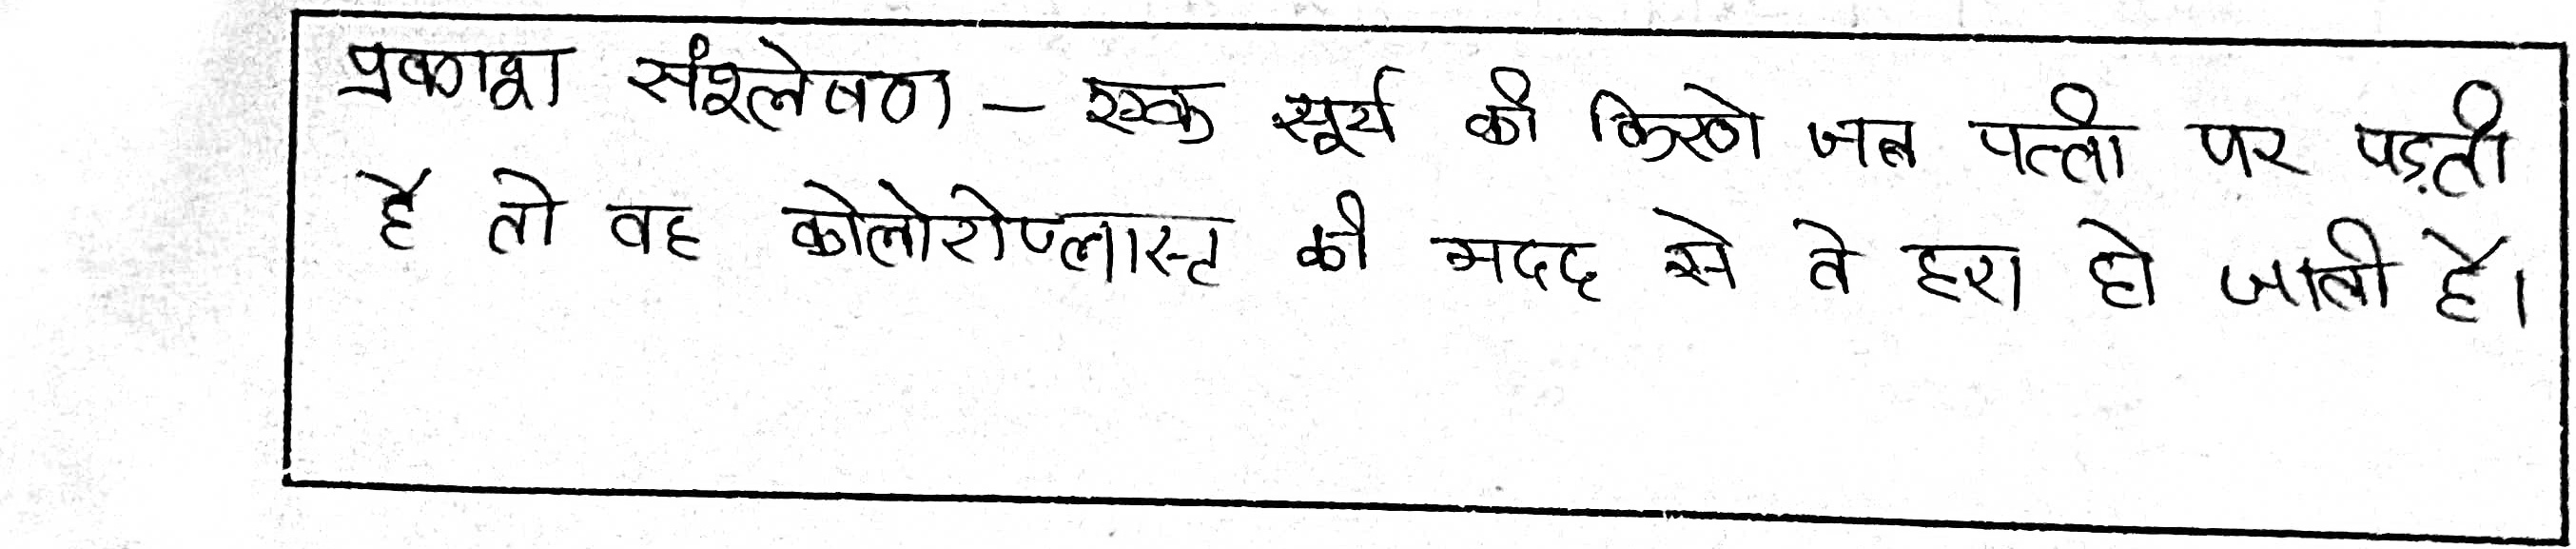 प्रकाश संश्लेषण - सूर्य की किरणे जब पत्ती पर पड़ती
है तो वह कोलोरोप्लास्ट की मदद से वे हरा हो जाती है।